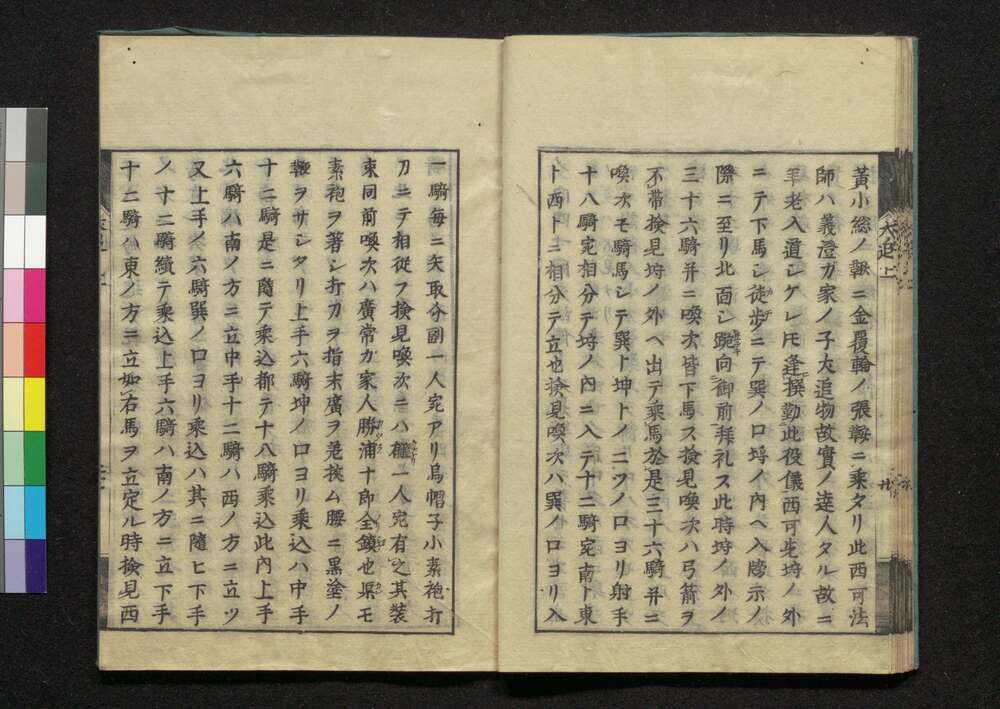 黃小総ノ鞦ニ金覆輪ノ張鞍ニ乗タリ此西可法
師ハ義澄ガ家ノ子犬追物故實ノ達人タル故ニ
年老入道シケレ𪜈逢撰勤此役儀西可先埒ノ外
ニテ下馬シ徒歩ニテ巽ノ口埒ノ内ヘ入牓示ノ
際ニ至リ北面シ跪向御前拜礼ス此時埒ノ外ノ
三十六騎并ニ喚次皆下馬ス撿見喚次ハ弓箭ヲ
不帯撿見埒ノ外ヘ出テ乗馬於是三十六騎并ニ
喚次モ騎馬シテ巽ト坤トノ二ツノ口ヨリ射手
十八騎宛相分テ埒ノ內ニ入テ十二騎宛南ト東
ト西トニ相分テ立也撿見喚次ハ巽ノ口ヨリ入
犬追上
一騎毎ニ矢取弓副一人宛アリ烏帽子小素袍打
刀ニテ相從フ撿見喚次ニハ權一人宛有之其装
束同前喚次ハ廣常ガ家人勝浦十郎金鎖也是モ
素袍ヲ著シ打刀ヲ指末廣ヲ持挾ム腰ニ黒塗ノ
鞭ヲサシタリ上手六騎坤ノ口ヨリ乗込ハ中手
十二騎是ニ隨テ乗込都テ十八騎乗込此內上手
六騎ハ南ノ方ニ立中手十二騎ハ西ノ方ニ立ツ
又上手ノ六騎巽ノ口ヨリ乗込ハ其ニ隨ヒ下手
ノ十二騎續テ乗込上手六騎ハ南ノ方ニ立下手
十二騎ハ東ノ方ニ立如右馬ヲ立定ル時撿見西